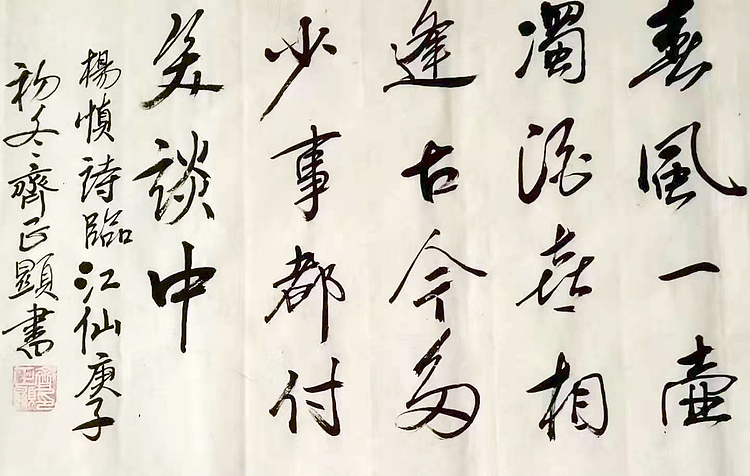 春風一壺
濁酒喜相
逢古今多
少事都付
笑談中
楊慎詩臨江仙庚子
初冬齊正顯書